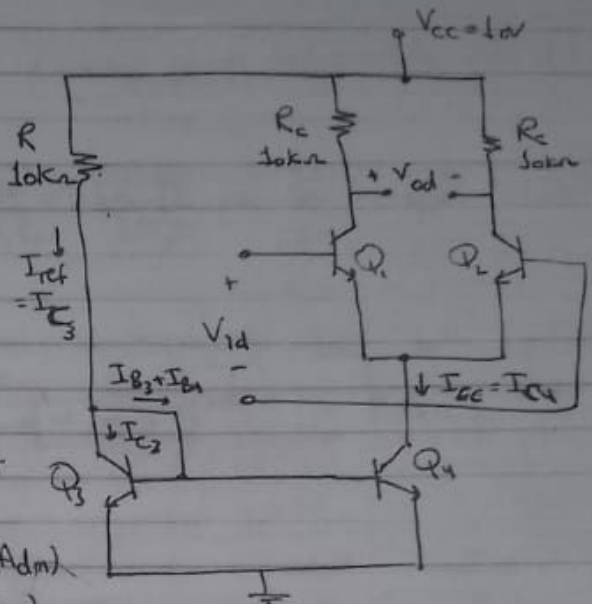 Vcc = 10V
R
10kΩ
Rc
10kΩ
Rc
10kΩ
+ Vod -
Iref
= IC3
Q1
Q2
+
Vid
-
IB3+IB4
IEE = IC4
IC3
Q3
Q4
Adm)